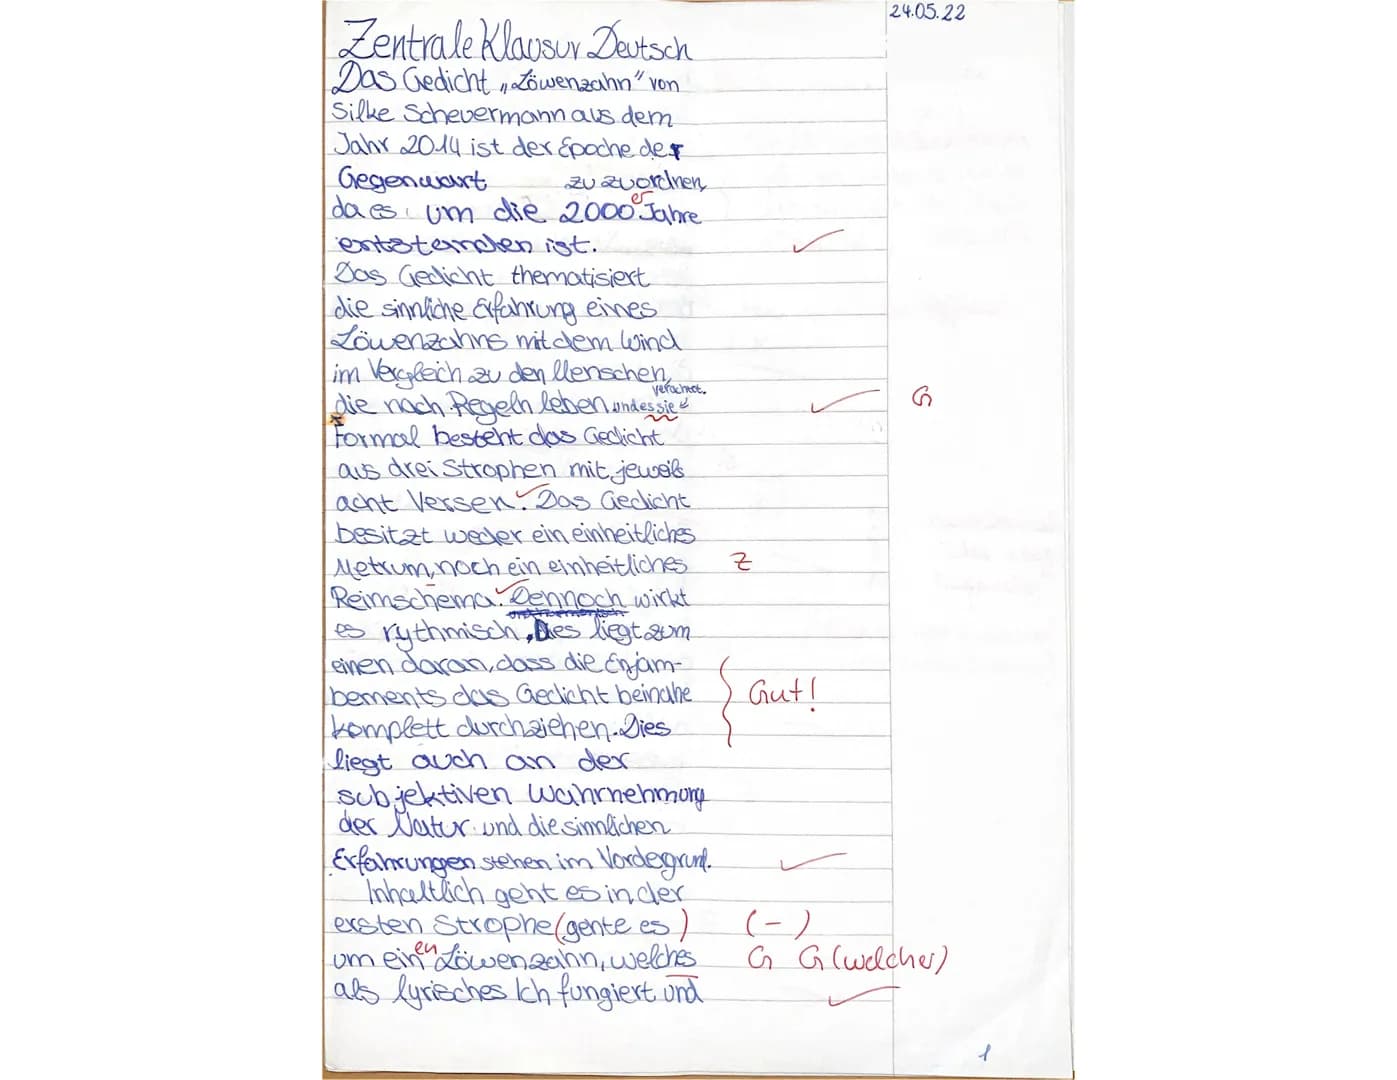 24.05.22
Zentrale Klausur Deutsch
Das Gedicht „Löwenzahn" von
Silke Scheuermann aus dem
Jahr 2014 ist der Epoche der
Gegenwart zu zuordnen,
da es um die 2000er Jahre
entstanden ist.
Das Gedicht thematisiert
die sinnliche Erfahrung eines
Löwenzahns mit dem Wind
im Vergleich zu den Menschen,
die nach Regeln leben und es sie verachtet. G
Formal besteht das Gedicht
aus drei Strophen mit jeweils
acht Versen. Das Gedicht
besitzt weder ein einheitliches
Metrum, noch ein einheitliches Z
Reimschema. Dennoch wirkt
es rythmisch, Dies liegt zum
einen daran, dass die Enjam-
bements das Gedicht beinahe Gut!
komplett durchziehen. Dies
liegt auch an der
subjektiven Wahrnehmung
der Natur und die sinnlichen
Erfahrungen stehen im Vordergrund.
Inhaltlich geht es in der
ersten Strophe (gehte es) (-)
um einen Löwenzahn, welches G G (welcher)
als lyrisches Ich fungiert und
1